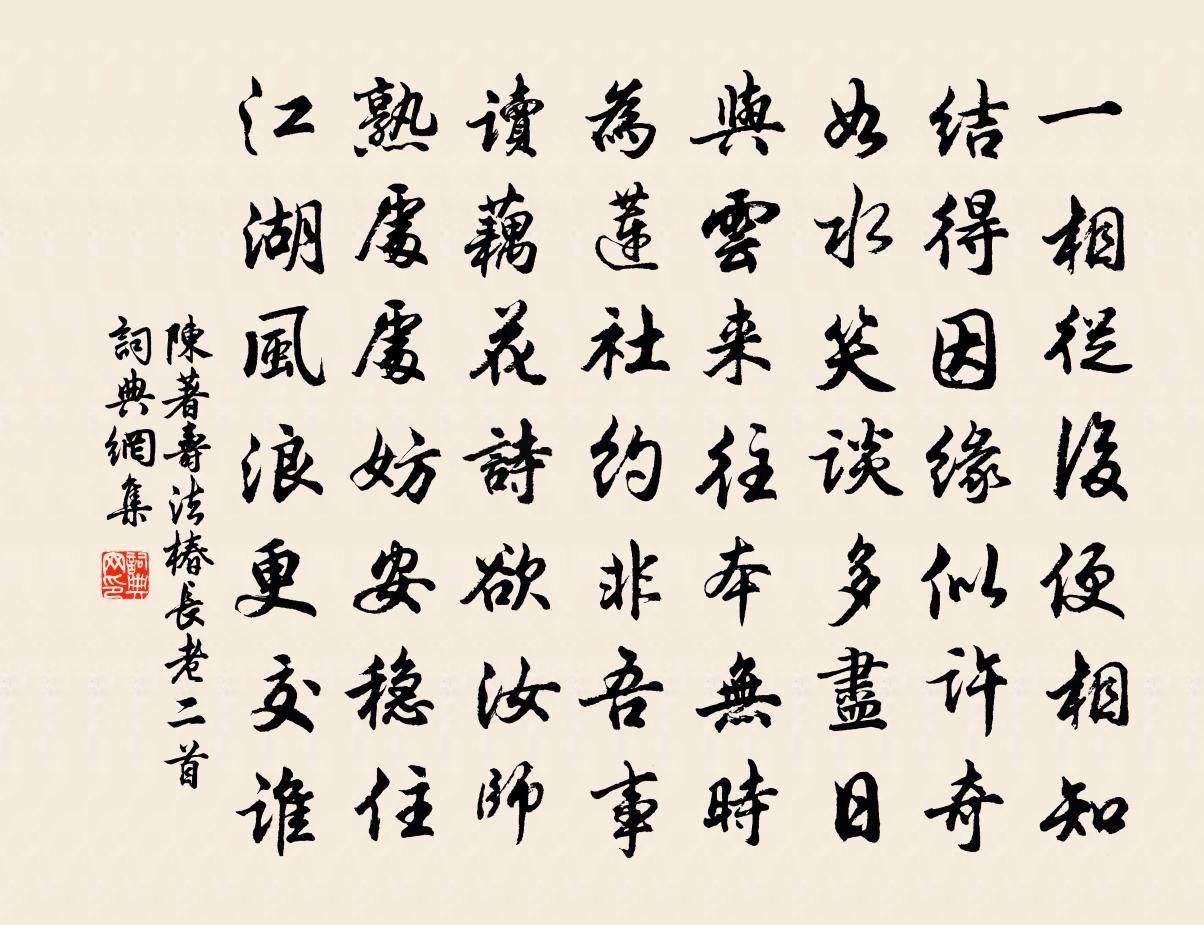 一相從後便相知
結得因緣似許奇
如水笑談多盡日
與雲来往本無時
為蓮社約非吾事
讀藕花詩欲汝師
熟處處妨安穩住
江湖風浪更交誰
陳著壽法椿長老二首
詞典網集
詞典网印